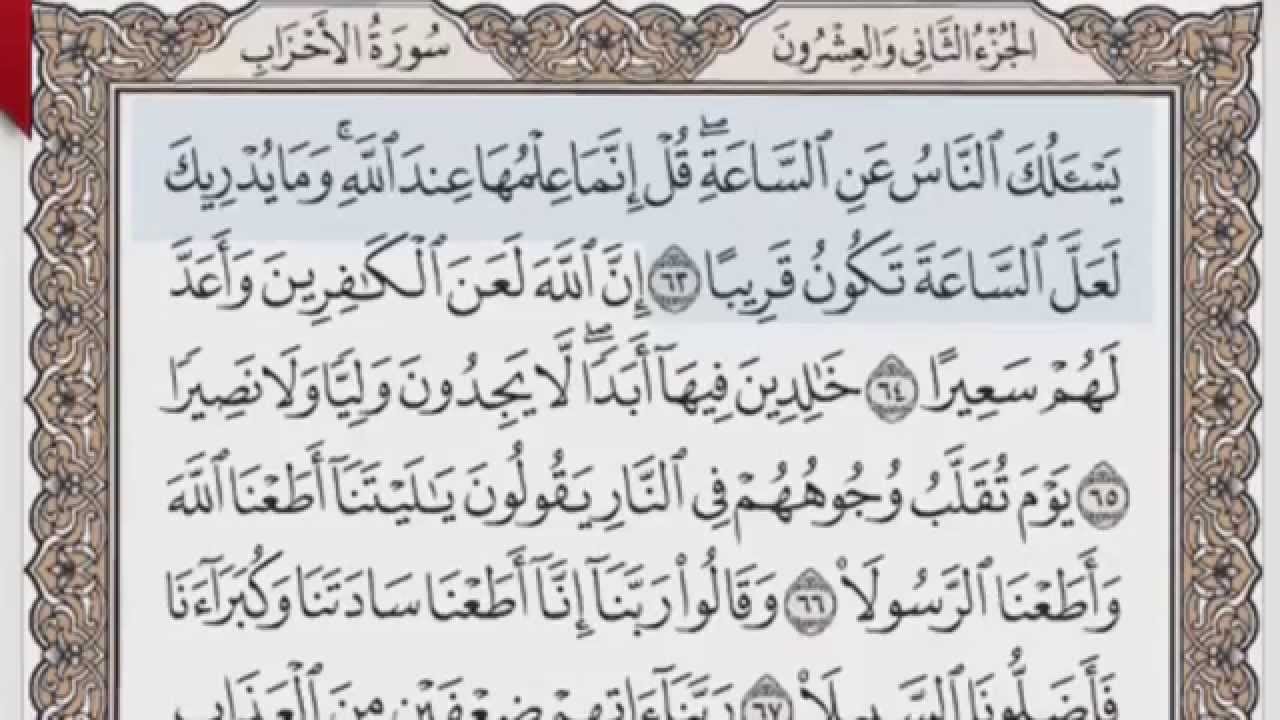 الجزء الثاني والعشرون
سورة الأحزاب
يَسْـَٔلُكَ ٱلنَّاسُ عَنِ ٱلسَّاعَةِۖ قُلْ إِنَّمَا عِلْمُهَا عِندَ ٱللَّهِۚ وَمَا يُدْرِيكَ
لَعَلَّ ٱلسَّاعَةَ تَكُونُ قَرِيبًا ٦٣ إِنَّ ٱللَّهَ لَعَنَ ٱلْكَـٰفِرِينَ وَأَعَدَّ
لَهُمْ سَعِيرًا ٦٤ خَـٰلِدِينَ فِيهَآ أَبَدًاۖ لَّا يَجِدُونَ وَلِيًّا وَلَا نَصِيرًا
٦٥ يَوْمَ تُقَلَّبُ وُجُوهُهُمْ فِى ٱلنَّارِ يَقُولُونَ يَـٰلَيْتَنَآ أَطَعْنَا ٱللَّهَ
وَأَطَعْنَا ٱلرَّسُولَا۠ ٦٦ وَقَالُوا۟ رَبَّنَآ إِنَّآ أَطَعْنَا سَادَتَنَا وَكُبَرَآءَنَا
فَأَضَلُّونَا ٱلسَّبِيلَا۠ ٦٧ رَبَّنَآ ءَاتِهِمْ ضِعْفَيْنِ مِنَ ٱلْعَذَابِ